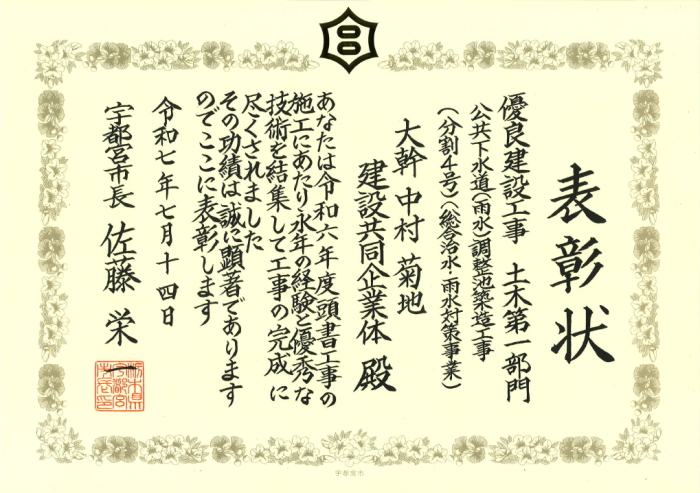 表彰状
優良建設工事 土木第一部門
公共下水道(雨水)調整池築造工事
(分割4号)(総合治水・雨水対策事業)
大幹 中村 菊地
建設共同企業体 殿
あなたは令和六年度頭書工事の
施工にあたり永年の経験と優秀な
技術を結集して工事の完成に
尽くされました
その功績は誠に顕著であります
のでここに表彰します
令和七年七月十四日
宇都宮市長 佐藤 栄一
宇都宮市